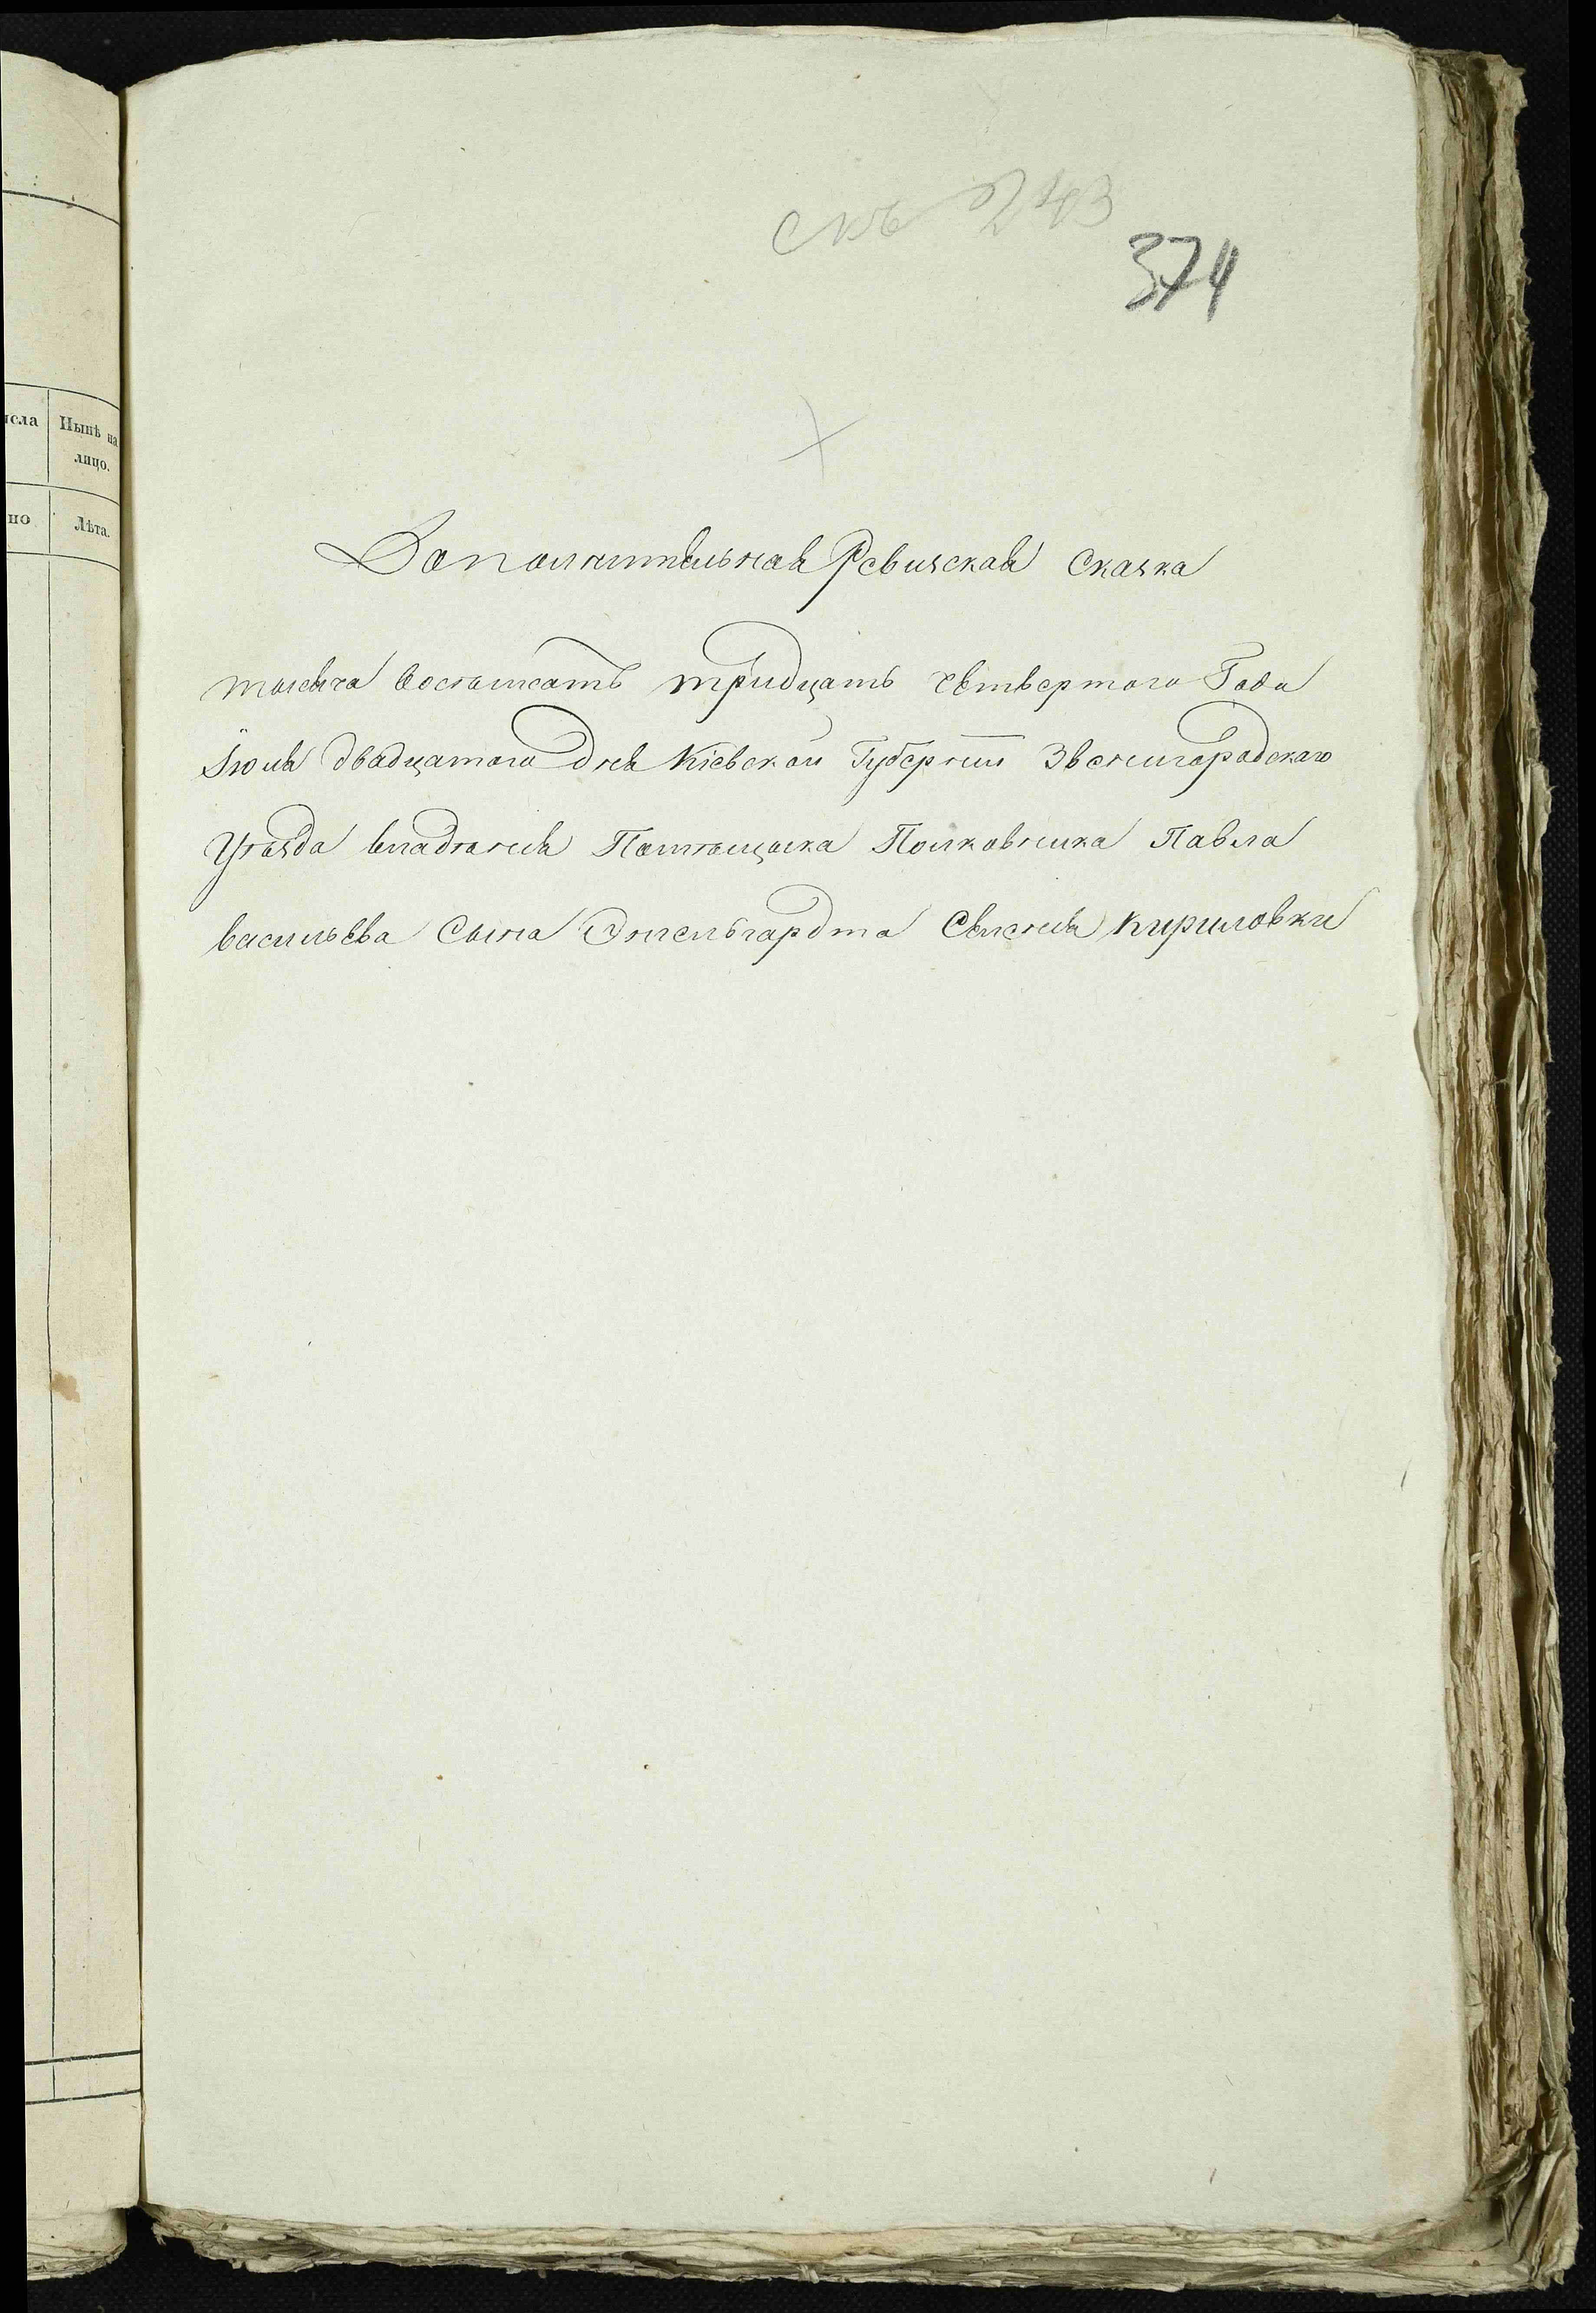 374
исла
Нынѣ на
лицо.
но
Лѣта.
Дополнительная Ревизская Сказка
тысеча восѣмсатъ тридцать четвертого Года
Іюля двадцатого Дня Кіевской Губерніи Звенигородскаго
Уѣзда владѣния Помѣщыка Полковника Павла
васильева Сына Энгельгардта Селения Кириловки